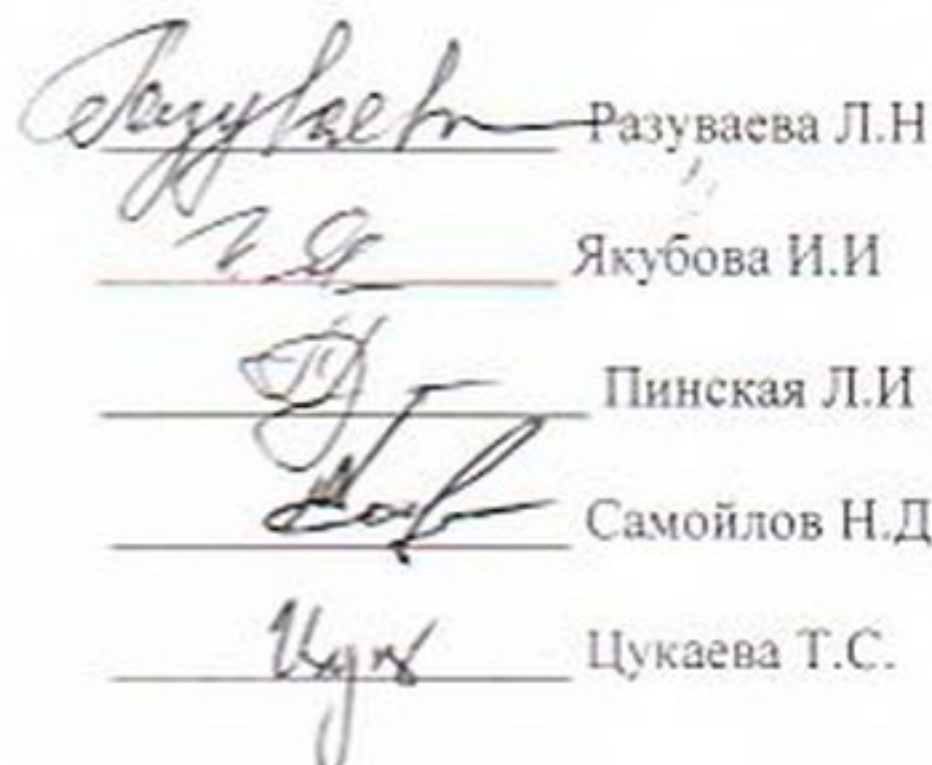 Разуваева Л.Н
Якубова И.И
Пинская Л.И
Самойлов Н.Д
Цукаева Т.С.